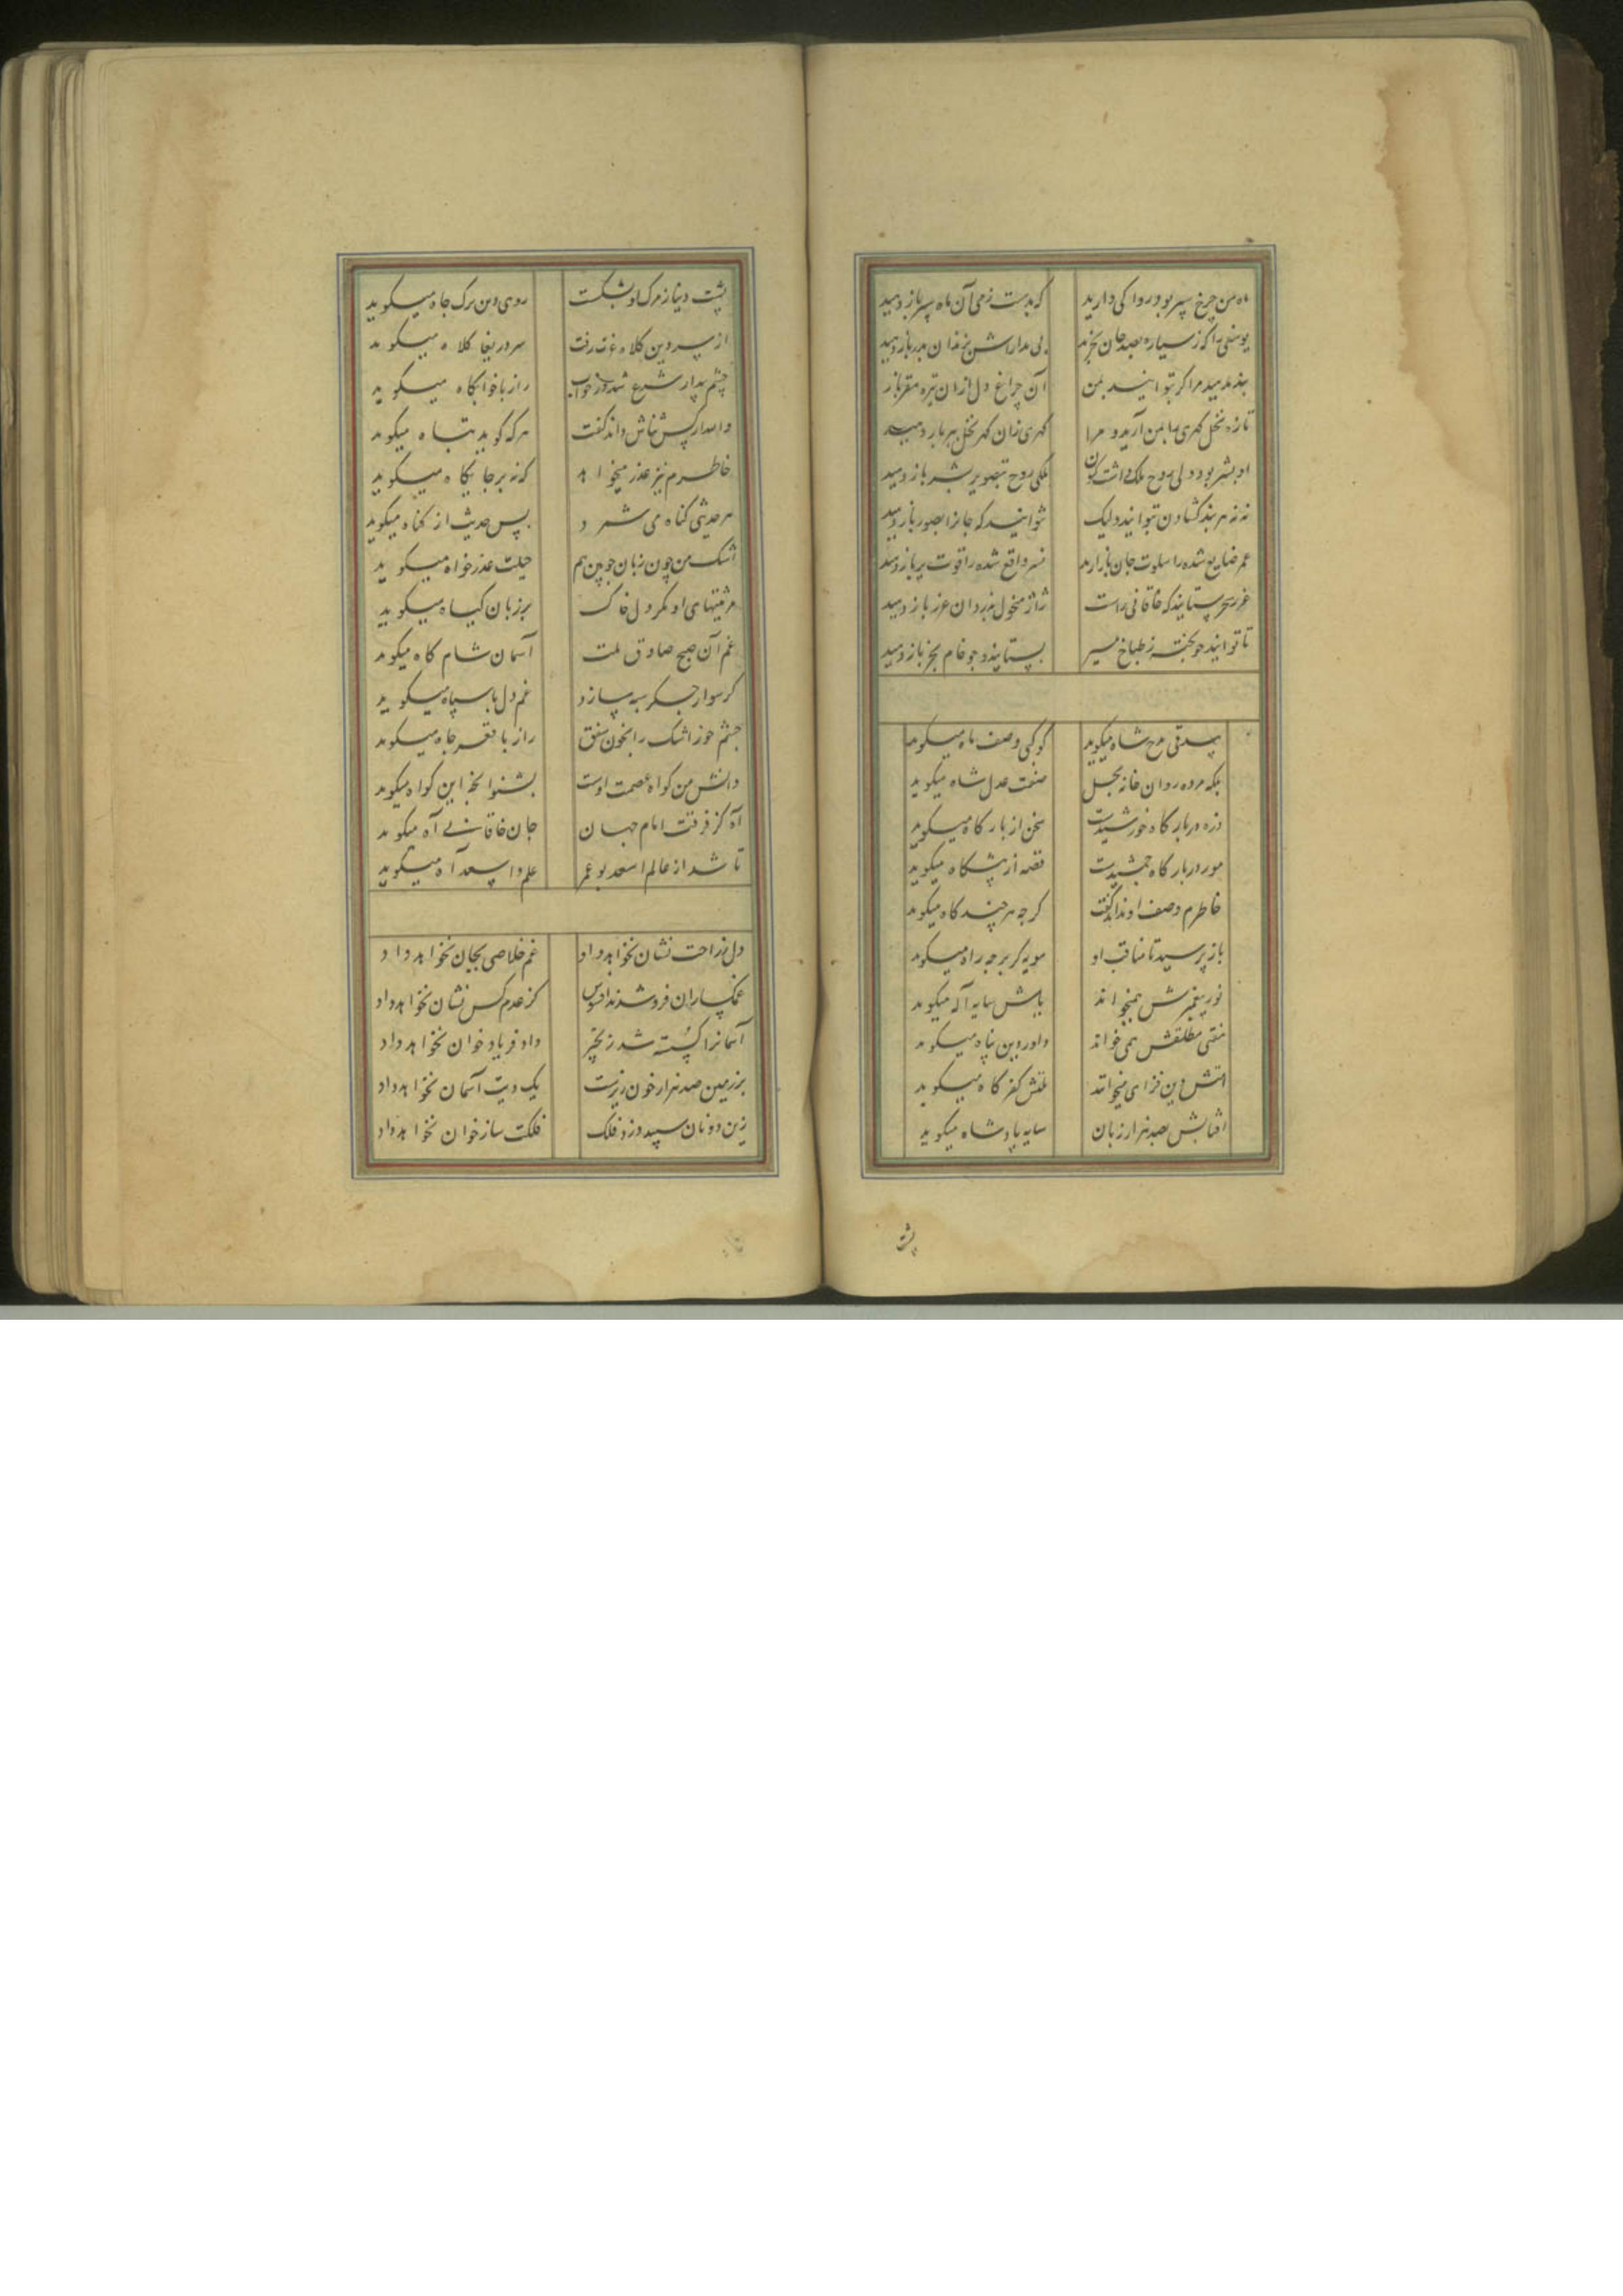 ماه من چرخ سپر بود روا کی دارید که بدست زمی آن ماه سپر باز دهید
یوسفی را که ز سیاره بصد جان بخرند بی مداراش بزندان مدر باز دهید
پند مدهید مرا گر بتوانید بمن آن چراغ دل ازان تیره مقر باز
تازه نخل گهری را بمن آرید و مرا گهری زان گهر نخل ببر باز دهید
او بشر بود ولی روح ملک داشت کنون ملکی روح بتصویر بشر باز دهید
نه نه هر بند گشادن بتوانید ولیک نتوانید که جانرا بصور باز دهید
عمر ضایع شده را سلوت جان باز آرید نسر واقع شده را قوت پر باز دهید
غرر سحر ستانید که خاقانی راست ژاژ منحول بدزدان غرر باز دهید
تا توانید جو پخته ز طباخ مسیر بستانید و جو خام بخر باز دهید
بیدقی مدح شاه میگوید کوکبی وصف ماه میگوید
بلکه مزدور دان خانه نحل صفت عدل شاه میگوید
ذره در بارگاه خورشیدست سخن از بارگاه میگوید
مور در بارگاه جمشیدست قصه از پیشگاه میگوید
خاطرم وصف او نداند گفت گرچه هر چند گاه میگوید
باز پرسید تا مناقب او مویه گر بر چه راه میگوید
نور پیغمبرش همیخواند باش سایه اله میگوید
متقی مطلقش همی خواند داور دین پناه میگوید
امتش دین فزای میخواند ملتش کفر کاه میگوید
آفتابش بصد هزار زبان سایه پادشاه میگوید
پشت
پشت دینا ز مرک او بشکست روی دین ترک جاه میگوید
از سر دین کلاه عزت رفت سر دریغا کلاه میگوید
چشم بیدار شرع شد در خواب راز با خوابگاه میگوید
و امدار کسش نباش داند گفت هر که گوید تباه میگوید
خاطرم نیز عذر میخواهد که نه بر جایگاه میگوید
هر حدیثی گناه می شمرد پس حدیث از گناه میگوید
اشک من چون زبان خونین هم حیلت عذرخواه میگوید
مرثیتهای او مگر دل خاک بر زبان گیاه میگوید
غم آن صبح صادق ملت آسمان شام گاه میگوید
گر سوار جگر سپه سازد غم دل با سپاه میگوید
چشم خور اشک را بخون شفق راز با قعر چاه میگوید
دانش من گواه عصمت اوست بشنو آنچ این گواه میگوید
آه کز فرقت امام جهان جان خاقانی آه میگوید
تا شد از عالم اسعد بو عمر علم وا اسعد آه میگوید
دل ز راحت نشان نخواهد داد غم خلاصی بجان نخواهد داد
غمگساران فرو شدند افسوس کز عدم کس نشان نخواهد داد
آسمانرا گسسته شد زنجیر داد فریاد خوان نخواهد داد
بر زمین صد هزار خون ریزست یک دیت آسمان نخواهد داد
زین دو نان سپید و زرد فلک فلکت ساز خوان نخواهد داد